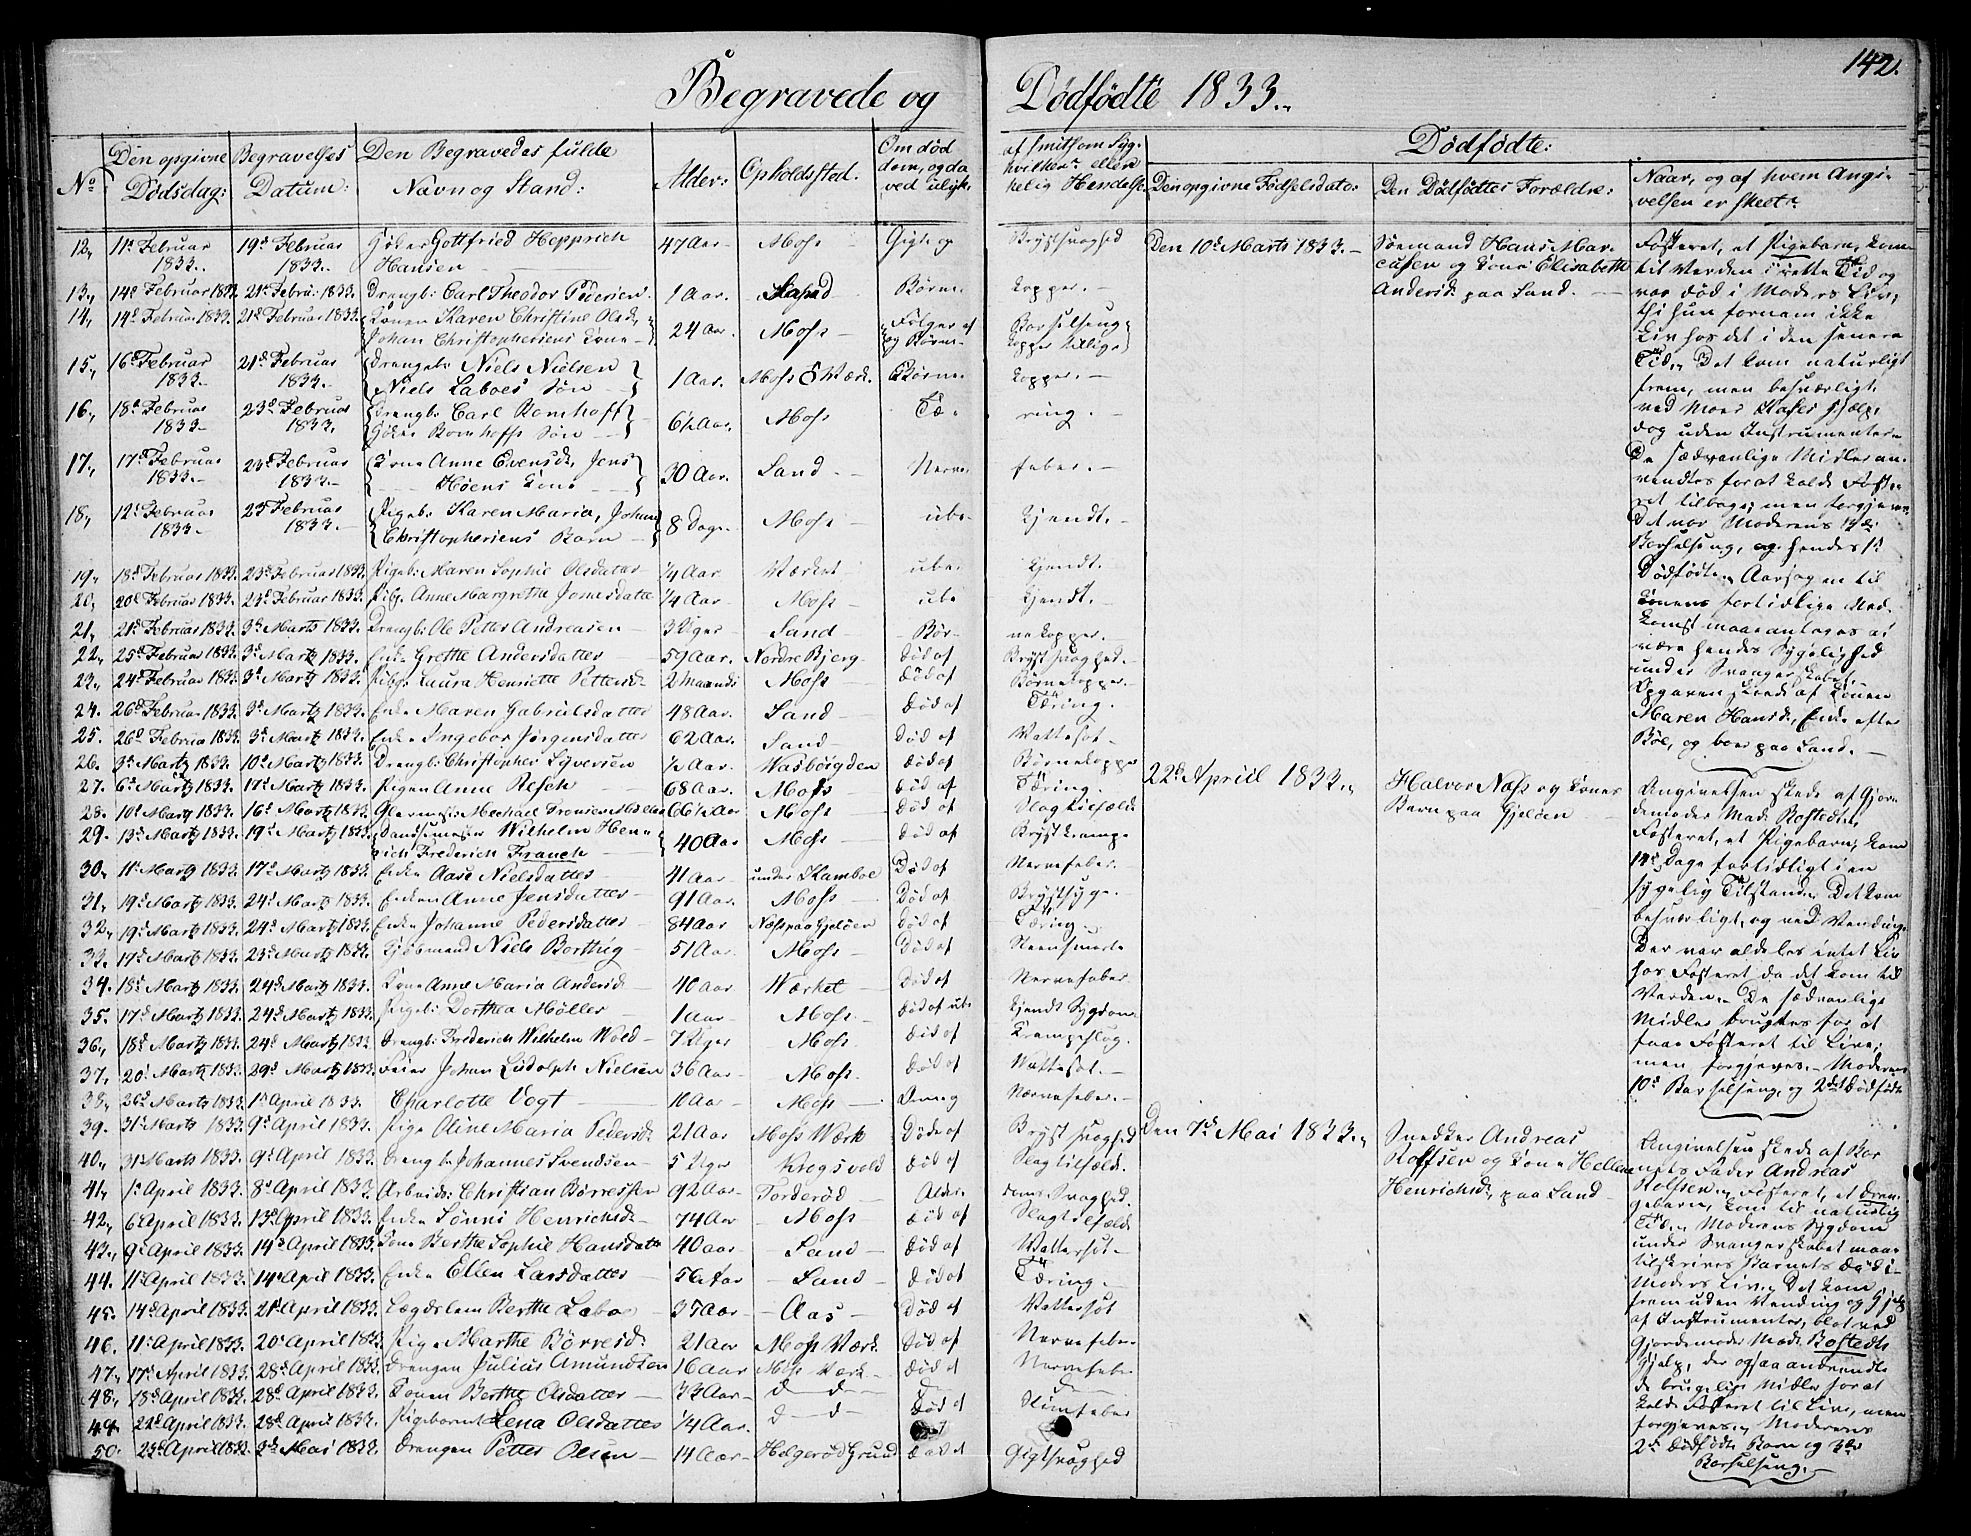 142.
Begravede og Dødfødte 1833.
No:
Den opgivne Dødsdag:
Begravelses Datum:
Den Begravedes fulde Navn og Stand:
Alder:
Opholdssted.
Om død
af smitsom Syg-
Dødfødte:
Den opgivne Fødselsdato:
Den Dødfødtes Forældre:
Naar, og af hvem Angi-
velsen er skeet.
12, 11te Februar 1833. 19de Februar 1833. Gottfried Hepprich Hansen 47 Aar Moss Gigt og Brystsvaghed
13, 14de Februar 1833 21de Febru: 1833. Drengb: Carl Theodor Pedersen 1 Aar. Børne kopper.
14, 14de Februar 1833. 21de Februar 1833. Konen Karen Christine Olsd., Johan Christophersens Kone 24 Aar Moss Følger af Barselseng og Børnekopper tillige
15, 16de Februar 1833. 21de Februar 1833. Drengeb: Niels Nielsen Niels Laboes Søn 1 Aar. Moss Værk. Børne kopper.
16, 18de Februar 1833 23de Februar 1833. Drengb: Carl Romhoff Romhoffs Søn 6½ Aar. Moss Tæ- ring.
17, 17de Februar 1833. 23de Februar 1833. Kone Anne Evensd., Jens Høens Kone 30 Aar. Sand. Nerve feber.
18, 12te Februar 1833. 23 Februar 1833. Pigeb: Karen Maria, Johan Christophersens Barn 8 Dage Moss ube- kjendt.
19, 18de Februar 1833. 23de Februar 1833. Pigeb: Maren Sophie Olsdatter ¼ Aar Værket ube- kjendt.
20, 20de Februar 1833. 23de Februar 1833. Pigb: Anne Margrethe ¼ Aar Moss ube kjendt.
21, 21de Februar 1833. 3de Marts 1833. Drengb: Ole Petter Andreasen 3 Uger Sand Bør- nekopper.
22, 25de Februar 1833. 3de Martz 1833. Enke Grethe Andersdatter 59 Aar. Nordre Bjerg død af Brystsvaghed.
23, 24de Februar 1833. 3de Martz 1833. Pigb: Laura Henriette Pettersd. 2 Maaneds Moss død af Børnekopper.
24. 26de Februar 1833. 3de Martz 1833. Enke Maren Gabrielsdatter 48 Aar. Sand død af Tæring.
25. 26de Februar 1833. 3de Martz 1833. Enke Ingebor Jørgensdatter 62 Aar. Sand Død af Vattersot
26. 3de Martz 1833. 10de Martz 1833. Drengb: Christopher Syversen ½ Aar. død af Børnekopper
27. 6te Martz 1833. 17de Martz 1833. Pigen Anne Resch 68 Aar. Moss død af Tæring.
28. 10de Martz 1833. 16de Martz 1833. 66½ Aar Moss død af Slagtilfælde
29. 13de Martz 1833. 19de Martz 1833. Dandsemester Wilhelm Hen- rich Frederich Franck 40 Aar Moss død af Brystkrampe
30, 11te Martz 1833. 17de Martz 1833. Enke Aase Nielsdatter 41 Aar under Kamboe Død af Nervefeber.
31, 19de Martz 1833. 24de Martz 1833. Enken Anne Jensdatter 91 Aar. Moss Død af Brystsyge.
32, 19de Martz 1833. 24de Martz 1833. Enke Johanne Pedersdatter 84 Aar Næss paa Gjeløen død af Tæring
33. 17de Martz 1833. 23de Martz 1833. Kjøbmand Niels Borthig 51 Aar. Moss Død af Steensmerte
34. 18de Martz 1833. 24de Martz 1833. Kone Anne Maria Andersd. 40 Aar Værket Død af Nervefeber
35. 17de Martz 1833. 24de Martz 1833. Pigeb: Dorthea Møller 1 Aar Moss. død af ube kjendt Sygdom
36, 18de Martz 1833. 24de Martz 1833. Drengb: Frederich Wilhelm Wold 7 Uger Moss. død af Krampeslag.
37, 20de Martz 1833. 29de Martz 1833. Feier Johan Ludolph Nielsen 36 Aar Moss. død af Vattersot.
38, 26de Martz 1833. 1ste April 1833. Charlotte Vogt 10 Aar Moss Nervefeber.
39. 31te Martz 1833. 9de April 1833. Pige Oline Maria Pedersd. 21 Aar Moss Værk Døde af Brystsvaghed
40, 31te Marts 1833. 9de April 1833. Drengb: Johannes Svendsen 5 Uger Kregsvold død af Slagtilfælde.
41, 1ste April 1833. 8de April 1833. Arbeids: Christian Børresen 92 Aar Torderød Alder- doms Svaghed.
42, 6te April 1833. 13de April 1833. Enke Sønni Henrichsd. 74 Aar Moss død af Slagtilfælde
43, 9de April 1833. 14de April 1833. Kone Berthe Sophie Hansdatter 40 Aar Sand død af Vattersot
44. 11te April 1833. 14de April 1833. Enke Ellen Larsdatter 56 Aar Sand død af Tæring.
45. 14de April 1833. 21de April 1833. Lægdslem Berthe Labo 37 Aar Aas Død af Vattersot
46. 11te April 1833. 20de April 1833. Pige Marthe Børresd. 21 Aar Moss Værk. Død af Nervefeber
47. 17de April 1833. 28de April 1833. Drengen Julius Amundsen 16 Aar Moss Værk død af Nervefeber
48, 18de April 1833. 28de April 1833. Konen Berthe Olsdatter 33 Aar d d d d
49. 22de April 1833. 28de April 1833. Pigebarnet Lena Olsdatter ¼ Aar. d d død af Slimfeber
50. 23de April 1833. 3de Mai 1833. Drengen Petter Olsen 14 Aar Helgerød Grund død af Gigtsvaghed
Den 10de Marts 1833.
Søemand Hans Mar-
cusen og Kone Elisabeth
Andersd. paa Sand.
Fosteret, et Pigebarn, kom
til Verden i rette Tid og
var død i Moders Liv,
thi hun fornem ikke
Liv hos det i den senere
Tid. Det kom naturligt
frem, men besværligt
ved Moer Hjælp,
dog uden Instrumenter.
De sædvanlige Midler an-
vendtes for at kalde Foste-
ret tilbage; men forgjeves.
Det var Moderens 12te
Barselseng, og hendes 1ste
Dødfødte. Aarsagen til
fortidlige Ned-
komst maae antages at
være hendes Sygelighed
under Svangerskabet.
Opgaven skede af Konen
Maren Hansd., Enke efter
Bøe, og boer paa Sand.
22de April 1833.
Halvor Næss og Kones
Barn paa Gjeløen
Angivelsen skede af Gjor-
demoder Mad. Rostedt.
Fosteret, et Pigebarn, kom
14 Dage fortidligt i en
sygelig Tilstand. Det kom
besværligt, og ved Vending.
Der var aldeles intet Liv
hos Fosteret da det kom til
Verden. De sædvanlige
Midler brugtes for at
faae Fosteret til Live;
men forgjeves. Moderens
10de Barselseng, og 2det Dødfødte
Den 7de Mai 1833.
Snedker Andreas
Rolfsen og Kone Hellene
Henrichsd., paa Sand
Angivelsen skede af Bar-
nets Fader Andreas
Rolfsen. Fosteret, et Dren-
gebarn, kom til naturlig
Tid. Moderens Sygdom
under Svangerskabet maae
tilskrives Barnets Død i
Moders Liv. Det kom
frem uden Vending og Hjelp
af Instrumenter, blot ved
Gjordemoder Mad. Rostedts
Hjelp, der ogsaa anvendte
de brugelige Midler for at
kalde Fosteret til Live, men
forgjeves. Moderens
2de Dødfødte Barn og 3die
Barselseng.